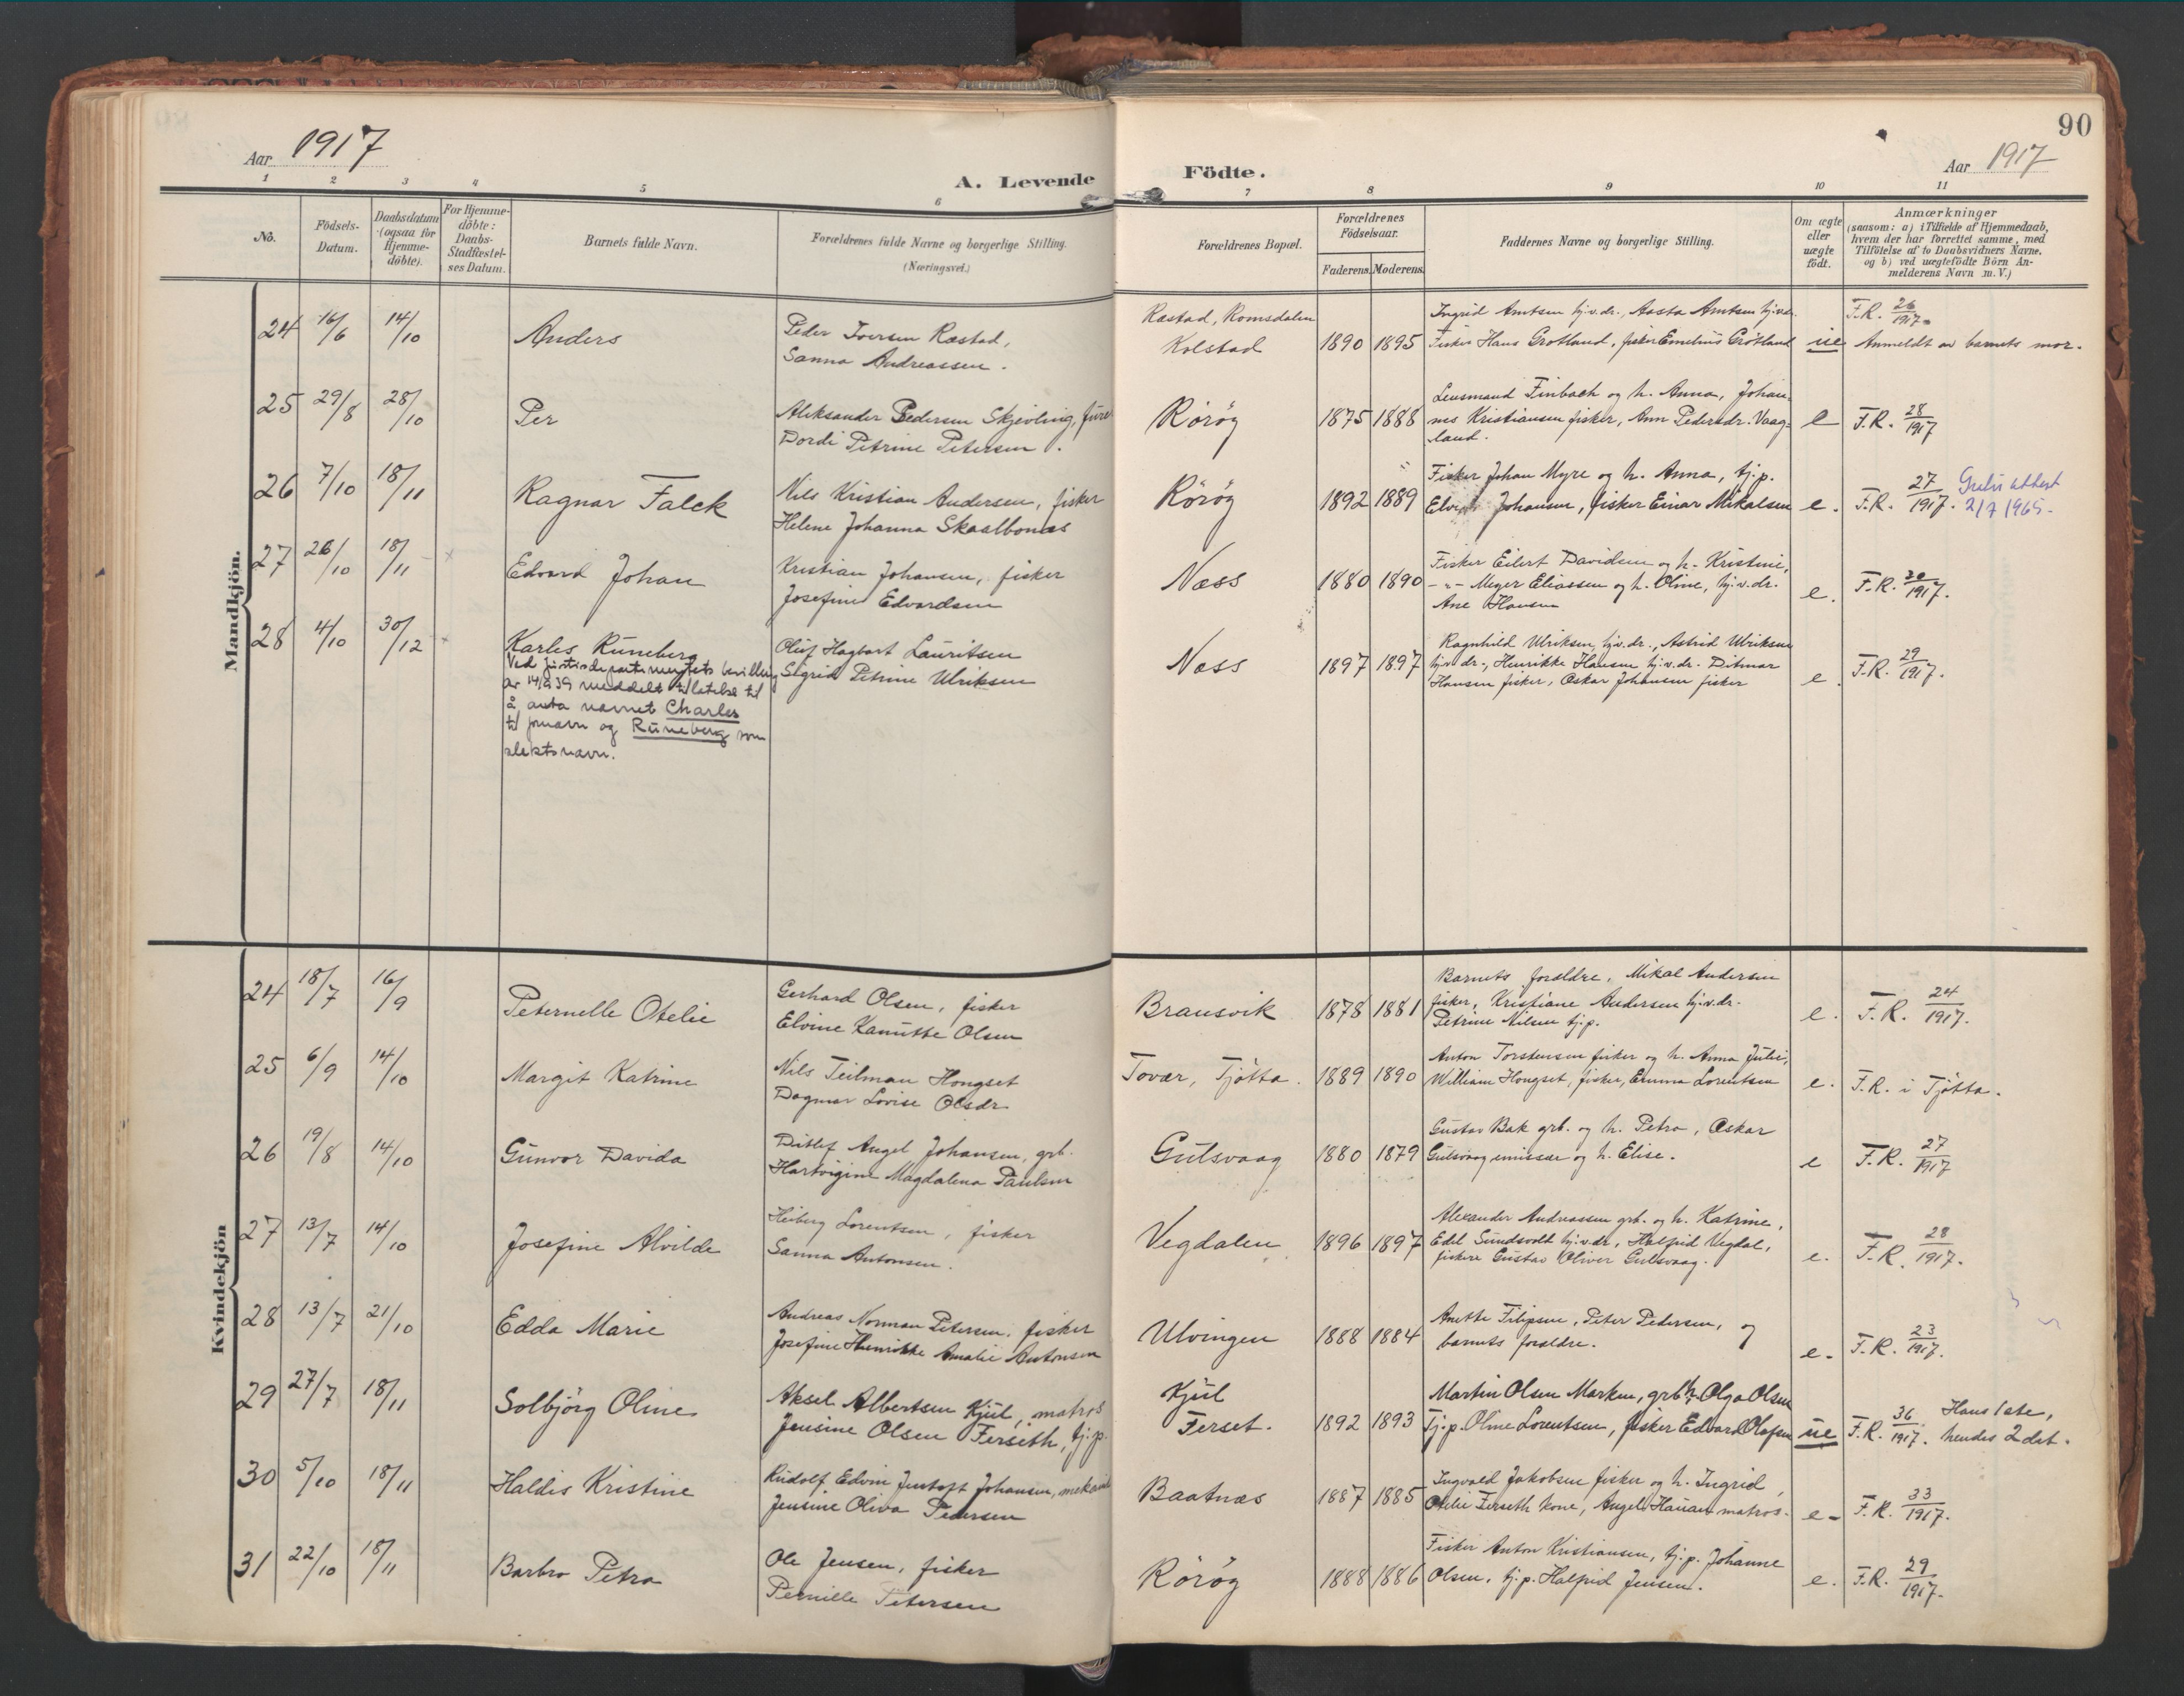 90
Aar 1917
A. Levende
Födte.
Aar 1917
1 2 3 4 5 6 7 8 9 10 11
No.
Födsels-
Datum.
Daabsdatum
(ogsaa for
Hjemme-
döbte).
For Hjemme-
döbte:
Daabs-
Stadfæstel-
ses Datum.
Barnets fulde Navn.
Forældrenes fulde Navne og borgerlige Stilling.
(Næringsvei.)
Forældrenes Bopæl.
Forældrenes
Födselsaar.
Faderens. Moderens.
Faddernes Navne og borgerlige Stilling.
Om ægte
eller
uægte
födt.
Anmærkninger
(saasom: a) i Tilfælde af Hjemmedaab,
hvem der har forrettet samme, med
Tilföielse af to Daabsvidners Navne.
og b) ved uægtefödte Börn An-
melderens Navn m. V.)
Mandkjön.
24 16/6 14/10 Anders
Peder Iversen Rastad,
Sanna Andreassen.
Rastad, Romsdalen
Kolstad
1890 1895
Ingrid Amtsen hj.v.dr., Aasta Amtsen hj.v.dr.
Fisker Hans Grotland, fisker Emelius Grötland
ue
F.R. 26/1917.
Anmeldt av barnets mor.
25 29/8 28/10 Per
Aleksander Pedersen Skjevling,
Dordi Petrine Petersen.
Rörög
1875 1888
Lensmand Finbach og h. Anna, Johan-
nes Kristiansen fisker, Ann Pedersdr. Vaag-
land.
e F.R. 28/1917
26 7/10 18/11 Ragnar Falck
Nils Kristian Andersen, fisker
Helene Johanna Skaalbones
Rörög
1892 1889
Fisker Johan Myre og h. Anna, tj.p.
Johansen, fisker Einar Mikalsen
e. F.R. 27/1917.
attest
2/7 1965.
27 26/10 18/11 Edvard Johan
Kristian Johansen, fisker
Josefine Edvardsen
Næss
1880 1890
Fisker Eilert Davidsen og h. Kristine,
-"- Meyer Eliassen og h. Oline, hj.v.dr.
Ane Hansen
e. F.R. 30/1917.
28 4/10 30/12 Karles Runeberg
Ved justisdepartementets bevilling
av 14/9 39 meddelt tillatelse til
å anta navnet Charles
til fornavn og Runeberg som
slektsnavn.
Oluf Hagbart Lauritsen
Sigrid Petrine Ulriksen
Næss
1897 1897
Ragnhild Ulriksen, hj.v.dr., Astrid Ulriksen
hj.v.dr., Henrikke Hansen hj.v.dr. Ditmar
Hansen fisker, Oskar Johansen fisker
e. F.R. 29/1917.
Kvindekjön
24 18/7 16/9 Peternelle Otelie
Gerhard Olsen, fisker
Elvine Kanutte Olsen
Bransvik
1878 1881
Barnets forældre, Mikal Andersen
fisker, Kristiane Andersen hj.v.dr.
Petrine Nilsen tj.p.
e. F.R. 24/1917.
25 6/9 14/10 Margit Katrine
Nils Teilman Hongset
Dagmar Lovise Olsdr.
Tovær, Tjötta.
1889 1890
Anton Torstensen fisker og h. Anna Julie,
William Hongset, fisker, Emma Lorentsen
e. F.R. i Tjötta.
26 19/8 14/10 Gunvor Davida
Ditlef Angel Johansen, grb.
Hartvigine Magdalena Paulsen
Gulsvaag
1880 1879
Gustav Bak grb. og h. Petra, Oskar
Gulsvaag emissær og h. Elise.
e F.R. 27/1917
27 13/7 14/10 Josefine Alvilde
Heiberg Lorentsen, fisker
Sanna Antonsen.
Vegdalen
1896 1897
Alexander Andreassen grb. og h. Katrine,
Edel Sundsvolt hj.v.dr., Halfrid Vegdal,
fiskere Gustav Oliver Gulsvaag.
e. F.R. 28/1917.
28 13/7 21/10 Edda Marie
Andreas Norman Petersen, fisker
Josefine Henrikke Amalie Antonsen
Ulvingen
1888 1884
Anette Filipsen, Peter Pedersen, og
barnets forældre.
e. F.R. 23/1917.
29 27/7 18/11 Solbjörg Oline
Aksel Albertsen Kjul, matros
Jensine Olsen Ferseth, tj.p.
Kjul
Ferset.
1892 1893
Martin Olsen Marken, grb. h. Olga Olsen
Tj.p. Oline Lorentsen, fisker Edvard Olafsen
ue F.R. 36/1917.
Hans 1ste,
hendes 2det.
30 5/10 18/11 Haldis Kristine
Rudolf Edvin Jentoft Johansen,
Jensine Oliva Pedersen
Baatnæs
1887 1885
Ingvald Jakobsen fisker og h. Ingrid,
Otelie Ferseth kone, Angel Hansen matros.
e. F.R. 33/1917.
31 22/10 18/11 Barbro Petra
Ole Jensen, fisker
Pernille Petersen
Rörög
1888 1886
Fisker Anton Kristiansen, tj.p. Johanne
Olsen, tj.p. Halfrid Jensen.
e. F.R. 29/1917.